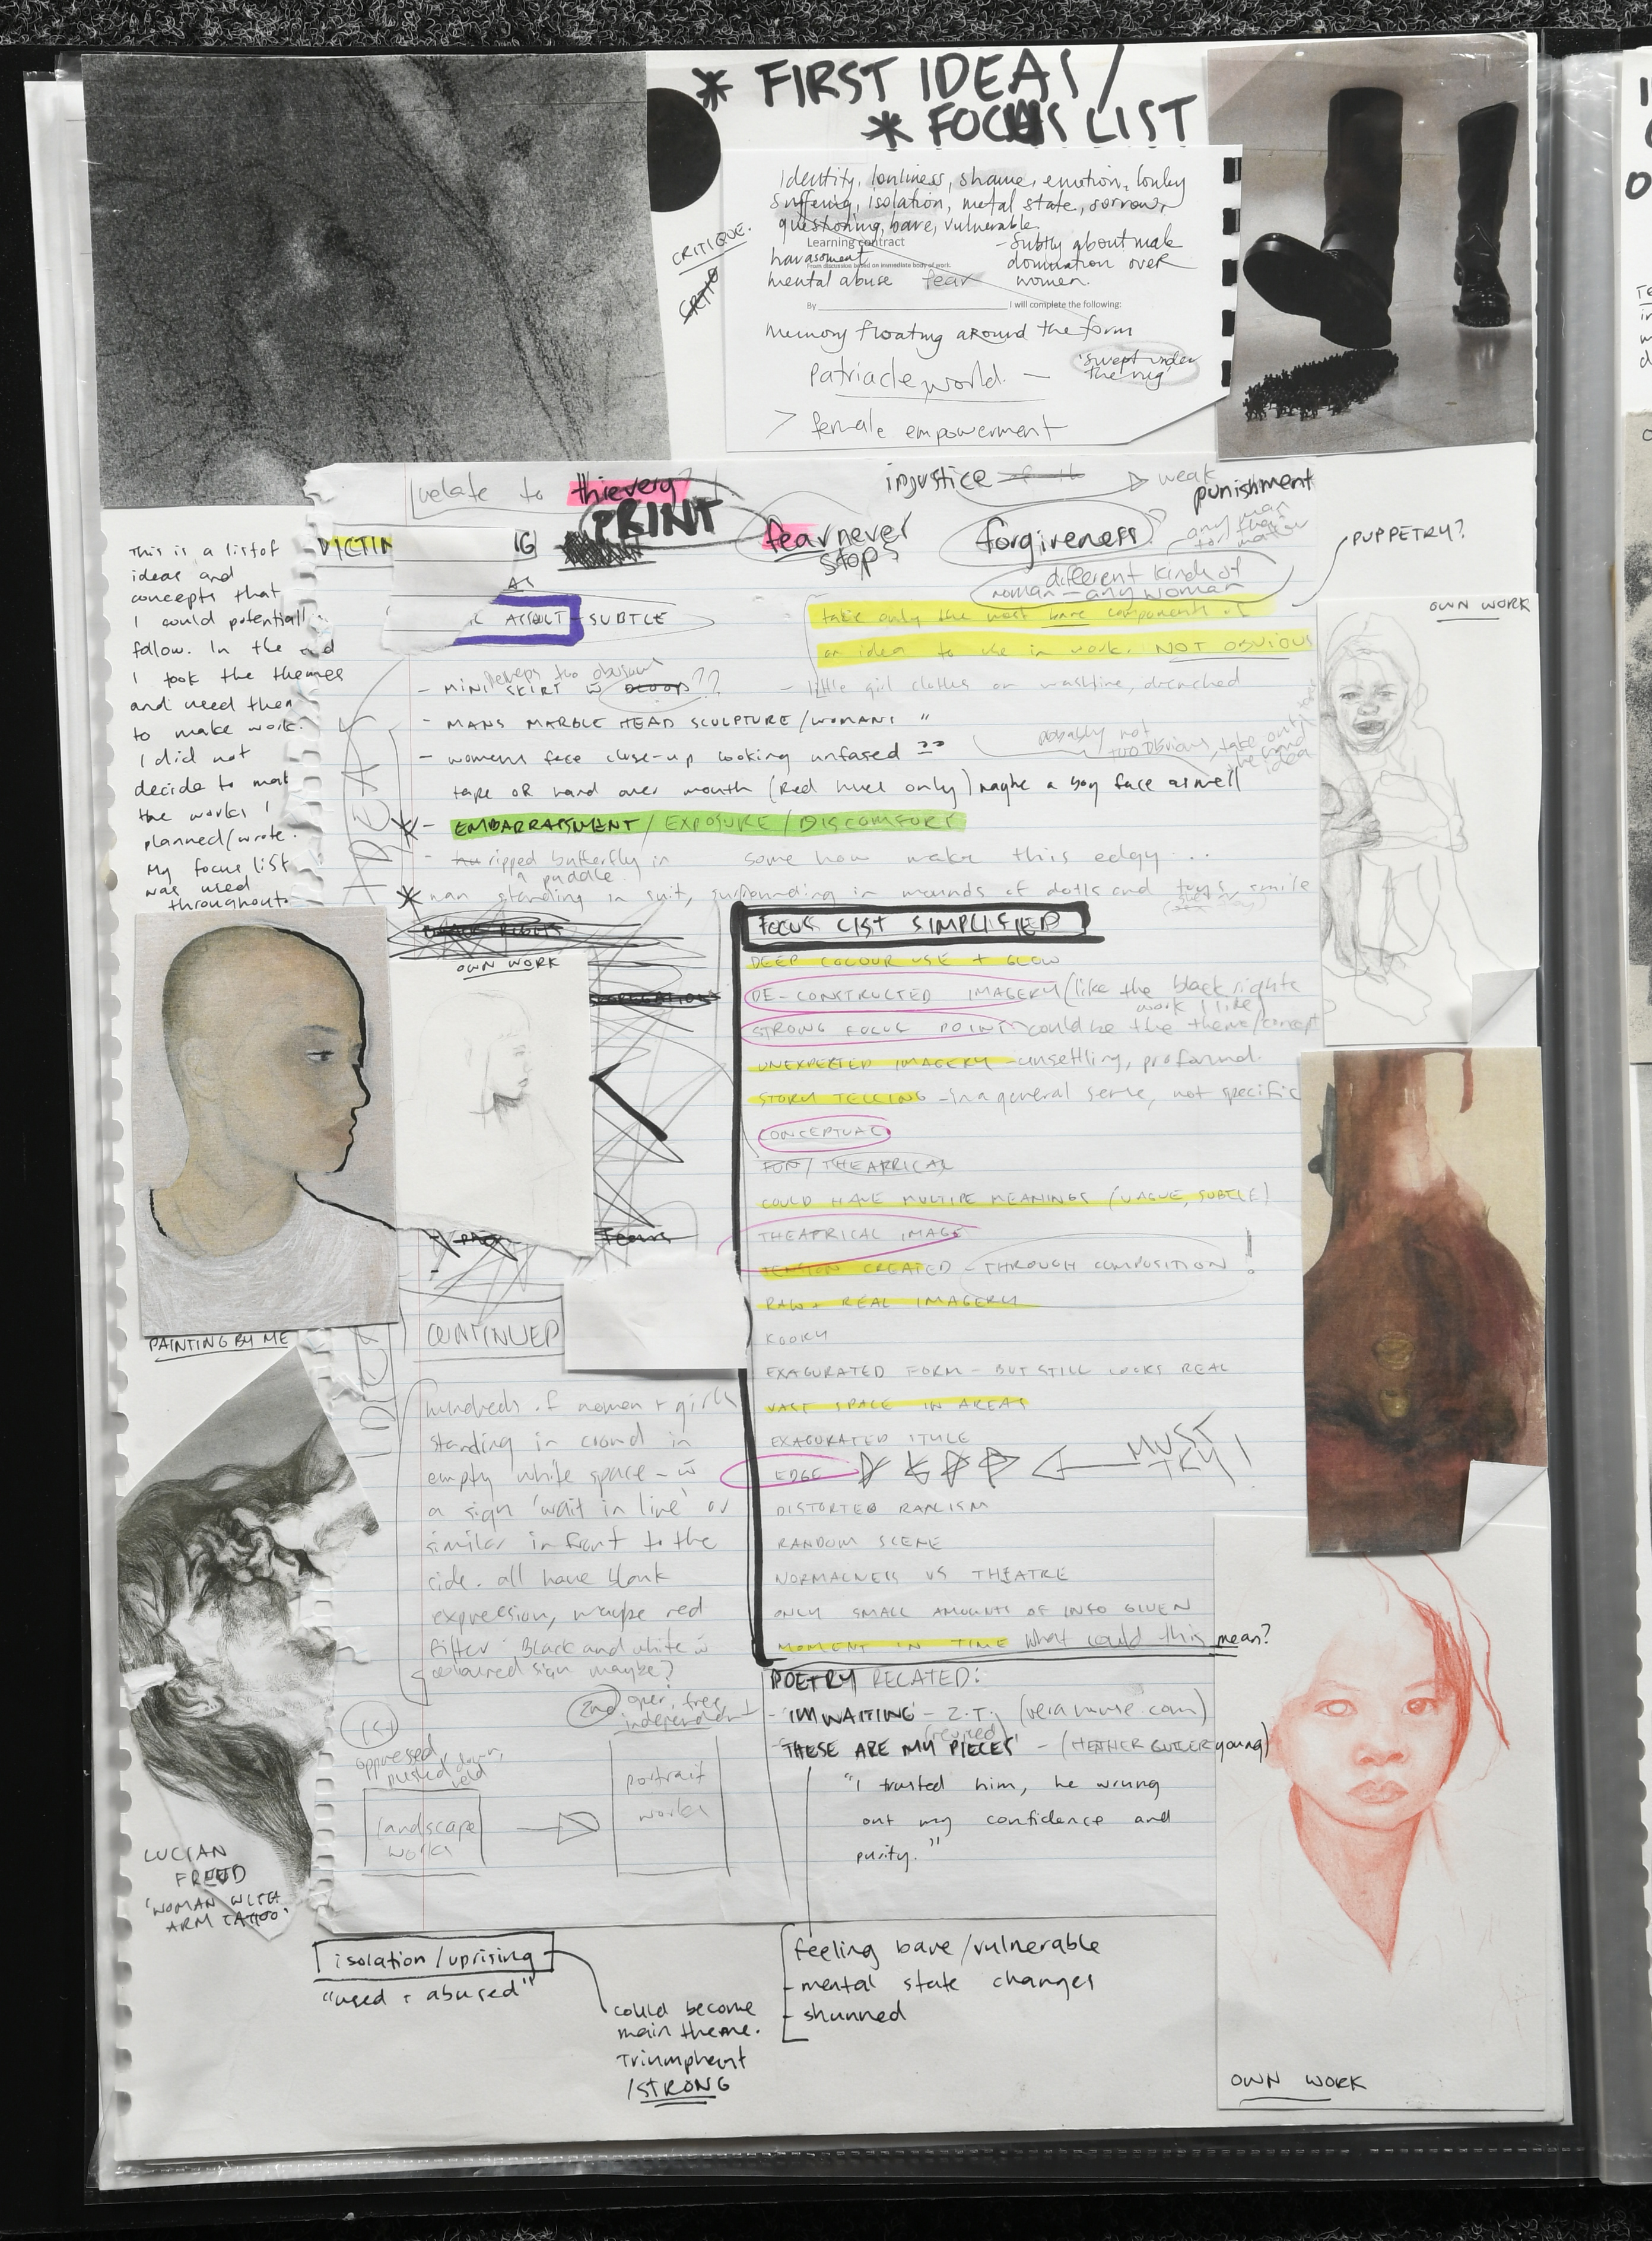 * FIRST IDEAS /
* FOCUS LIST
CRITIQUE.
Identity, lonliness, shame, emotion, lonley
suffering, isolation, metal state, sorrow,
questioning, bare, vulnerable
Learning contract
harassment
From discussion based on immediate body of work.
mental abuse fear
- Subtly about male
domination over
women.
By I will complete the following:
Memory floating around the form
Patriacle world -
'swept under
the rug'
> female empowerment
relate to thievery?
PRINT
injustice
weak
punishment
fear never
stops
forgiveness
any man
for that
matter
PUPPETRY?
different kinds of
woman - any woman
VICTIM
ASSULT - SUBTLE
take only the most bare components of
an idea to use in work. NOT OBVIOUS
OWN WORK
This is a list of
ideas and
concepts that
I could potentiall
follow. In the end
I took the themes
and used them
to make work.
I did not
decide to mak
the works I
planned/wrote.
My focus list
was used
throughout.
IDEAS
perhaps too obvious
- MINI SKIRT ??
- little girl clothes on washline, drenched
- MANS MARBLE HEAD SCULPTURE/WOMANS "
- womens face close-up looking unfased ??
probably not
too obvious, take out
the hand
idea
tape OR hand over mouth (Red hues only) maybe a boy face aswell
* - EMBARRASSMENT / EXPOSURE / DISCOMFORT
- ripped butterfly in
a puddle.
some how make this edgy...
* man standing in suit, surrounding in mounds of dolls and toys, smile
OWN WORK
FOCUS LIST SIMPLIFIED
DEEP COLOUR USE + GLOW
DE-CONSTRUCTED IMAGERY (like the black rights
work I like)
STRONG FOCUS POINT - could be the theme/concept
UNEXPECTED IMAGERY - unsettling, profound.
STORY TELLING - in a general sense, not specific
CONCEPTUAL
FUN / THEATRICAL
COULD HAVE MULTIPE MEANINGS (VAGUE, SUBTLE)
THEATRICAL IMAGE
TENSION CREATED - THROUGH COMPOSITION !
RAW + REAL IMAGERY
KOOKY
EXAGURATED FORM - BUT STILL LOOKS REAL
VAST SPACE IN AREAS
EXAGURATED STYLE
EDGE
MUST
TRY!
DISTORTED REALISM
RANDOM SCENE
NORMALNESS VS THEATRE
ONLY SMALL AMOUNTS OF INFO GIVEN
MOMENT IN TIME What could this mean?
PAINTING BY ME
CONTINUED
hundreds of women + girls
standing in crowd in
empty white space - w
a sign 'wait in line' or
similar in front to the
side. all have blank
expression, maybe red
filter. Black and white w
coloured sign maybe?
1st
oppressed
pushed down,
held
landscape
works
2nd
open, free
independent
portrait
works
POETRY RELATED:
- 'IM WAITING' - Z.T. (veramuse.com)
(revised)
- 'THESE ARE MY PIECES' - (HEATHER young)
"I trusted him, he wrung
out my confidence and
purity."
LUCIAN
FREUD
'WOMAN WITH
ARM TATTOO'
isolation / uprising
"used + abused"
could become
main theme.
Triumphant
/STRONG
feeling bare / vulnerable
- mental state changes
- shunned
OWN WORK